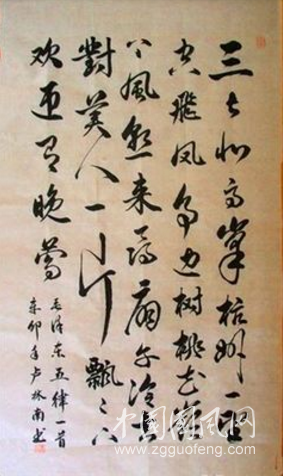 三上北高峯杭州一望
空飛凤亭边树桃花岭
上風热来寻扇子冷去
對美人一片飄々下
欢迎有晚莺
毛泽东五律一首
辛卯年卢林南书
中国国风网
www.zgguofeng.com